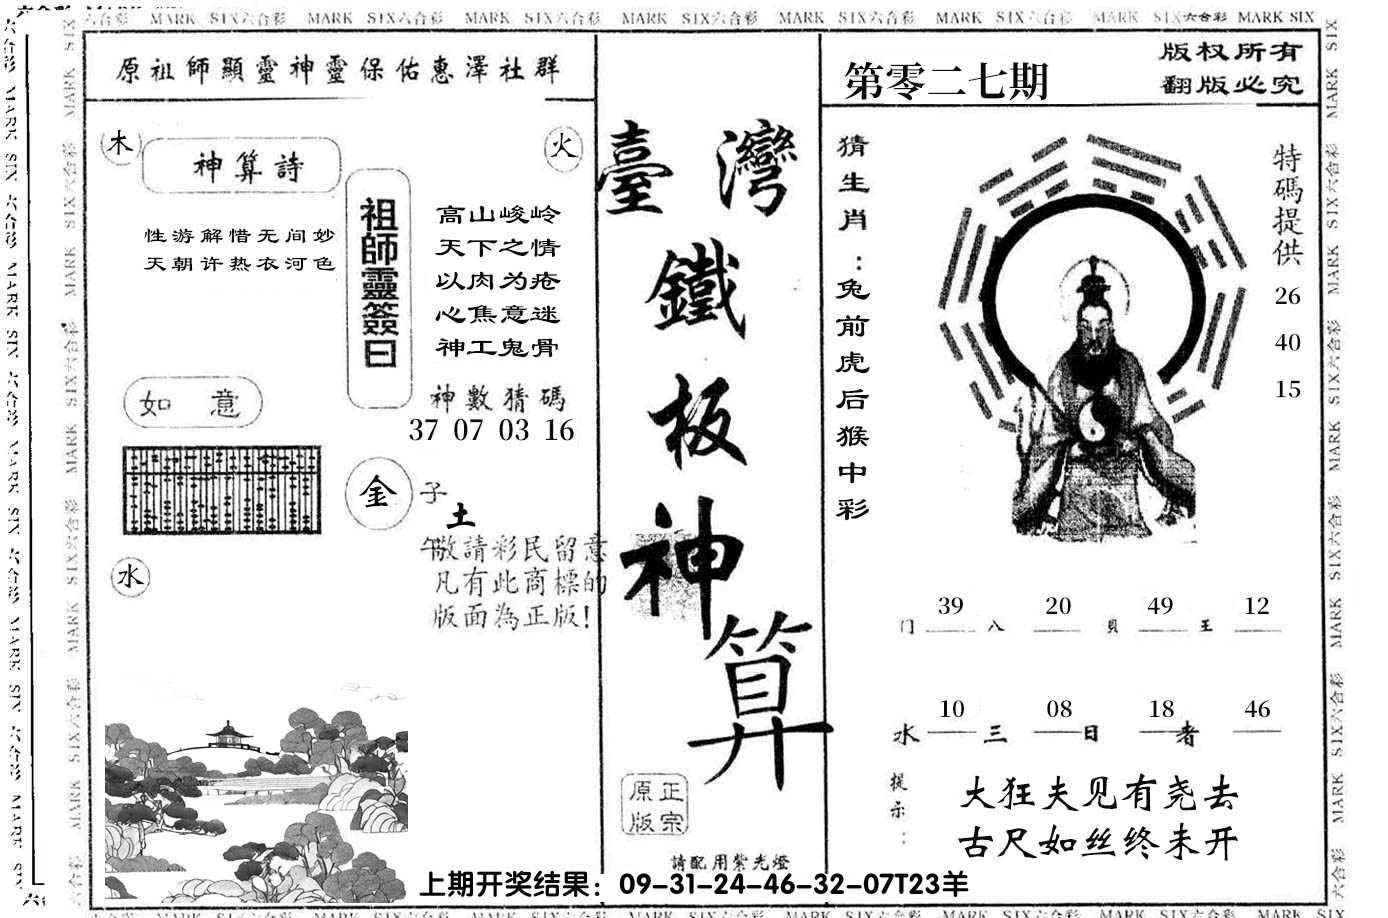 MARK SIX六合彩 MARK SIX六合彩 MARK SIX六合彩 MARK SIX六合彩 MARK SIX六合彩 MARK SIX六合彩 MARK SIX六合彩 MARK SIX
原祖師顯靈神靈保佑惠澤社群
木
神算詩
火
性游解惜无间妙
天朝许热衣河色
祖師靈簽曰
高山峻岭
天下之情
以肉为疮
心焦意迷
神工鬼骨
如意
神數猜碼
37 07 03 16
金
子
土
午
敬請彩民留意
凡有此商標的
版面為正版!
水
臺灣
鐵
板
神
算
原正
版宗
請配用紫光燈
第零二七期
版权所有
翻版必究
猜生肖:兔前虎后猴中彩
特碼提供
26
40
15
39 20 49 12
门 八 贝 王
10 08 18 46
水 三 日 者
提示:
大狂夫见有尧去
古尺如丝终未开
上期开奖结果：09-31-24-46-32-07T23羊